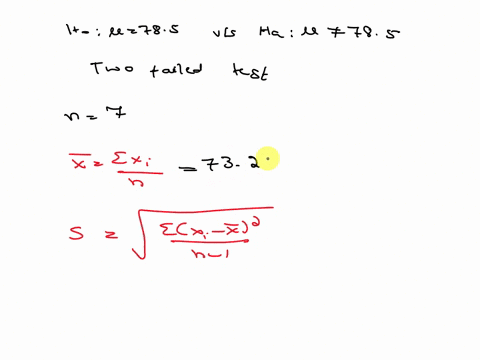 H₀: μ=78.5 v/s Ha: μ ≠ 78.5
Two tailed test
n = 7
x̄ = Σxᵢ/n = 73.2
S = √(Σ(xᵢ-x̄)²/(n-1))